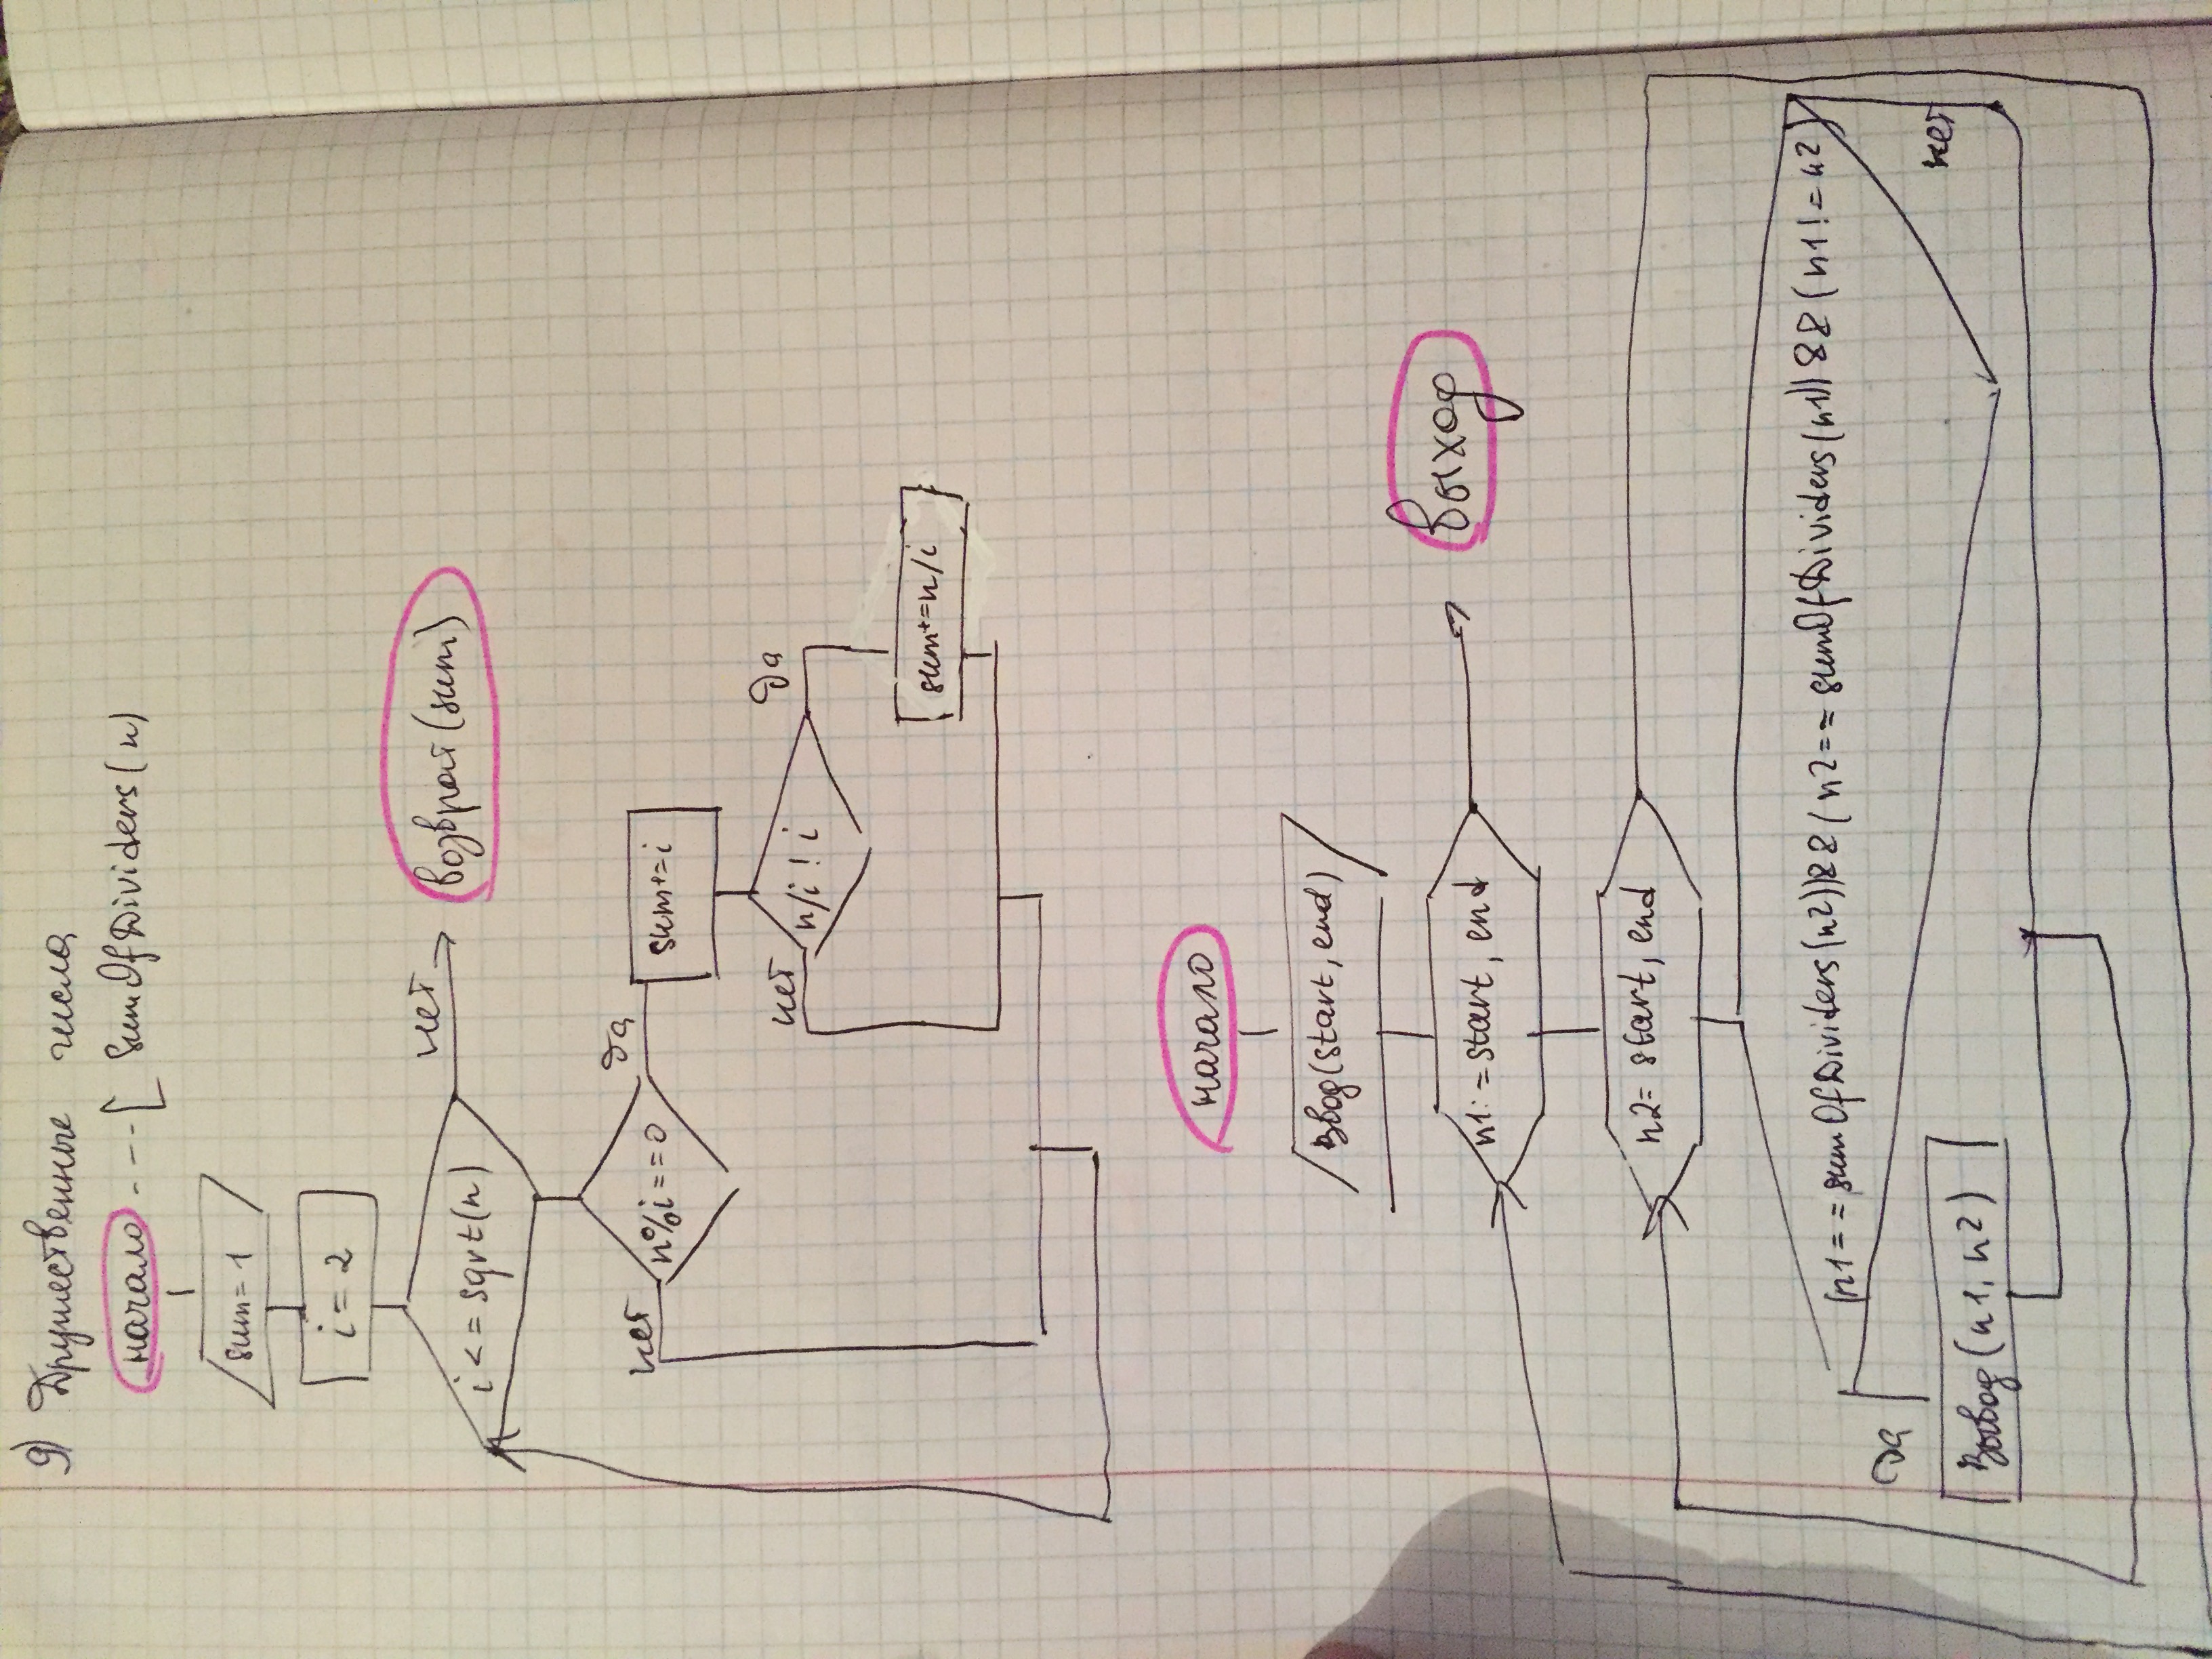 9) Дружественные числа
начало [ SumOfDividers(n)
sum = 1
i = 2
i <= sqrt(n) нет возврат(sum)
нет n%i==0 да sum+=i
нет n/i ! i да
sum+=n/i
начало
Ввод(start, end)
n1:=start, end выход
n2= start, end
(n1==sumOfDividers(n2))&&(n2==sumOfDividers(n1))&&(n1!=n2)
да
нет
Вывод(n1, n2)